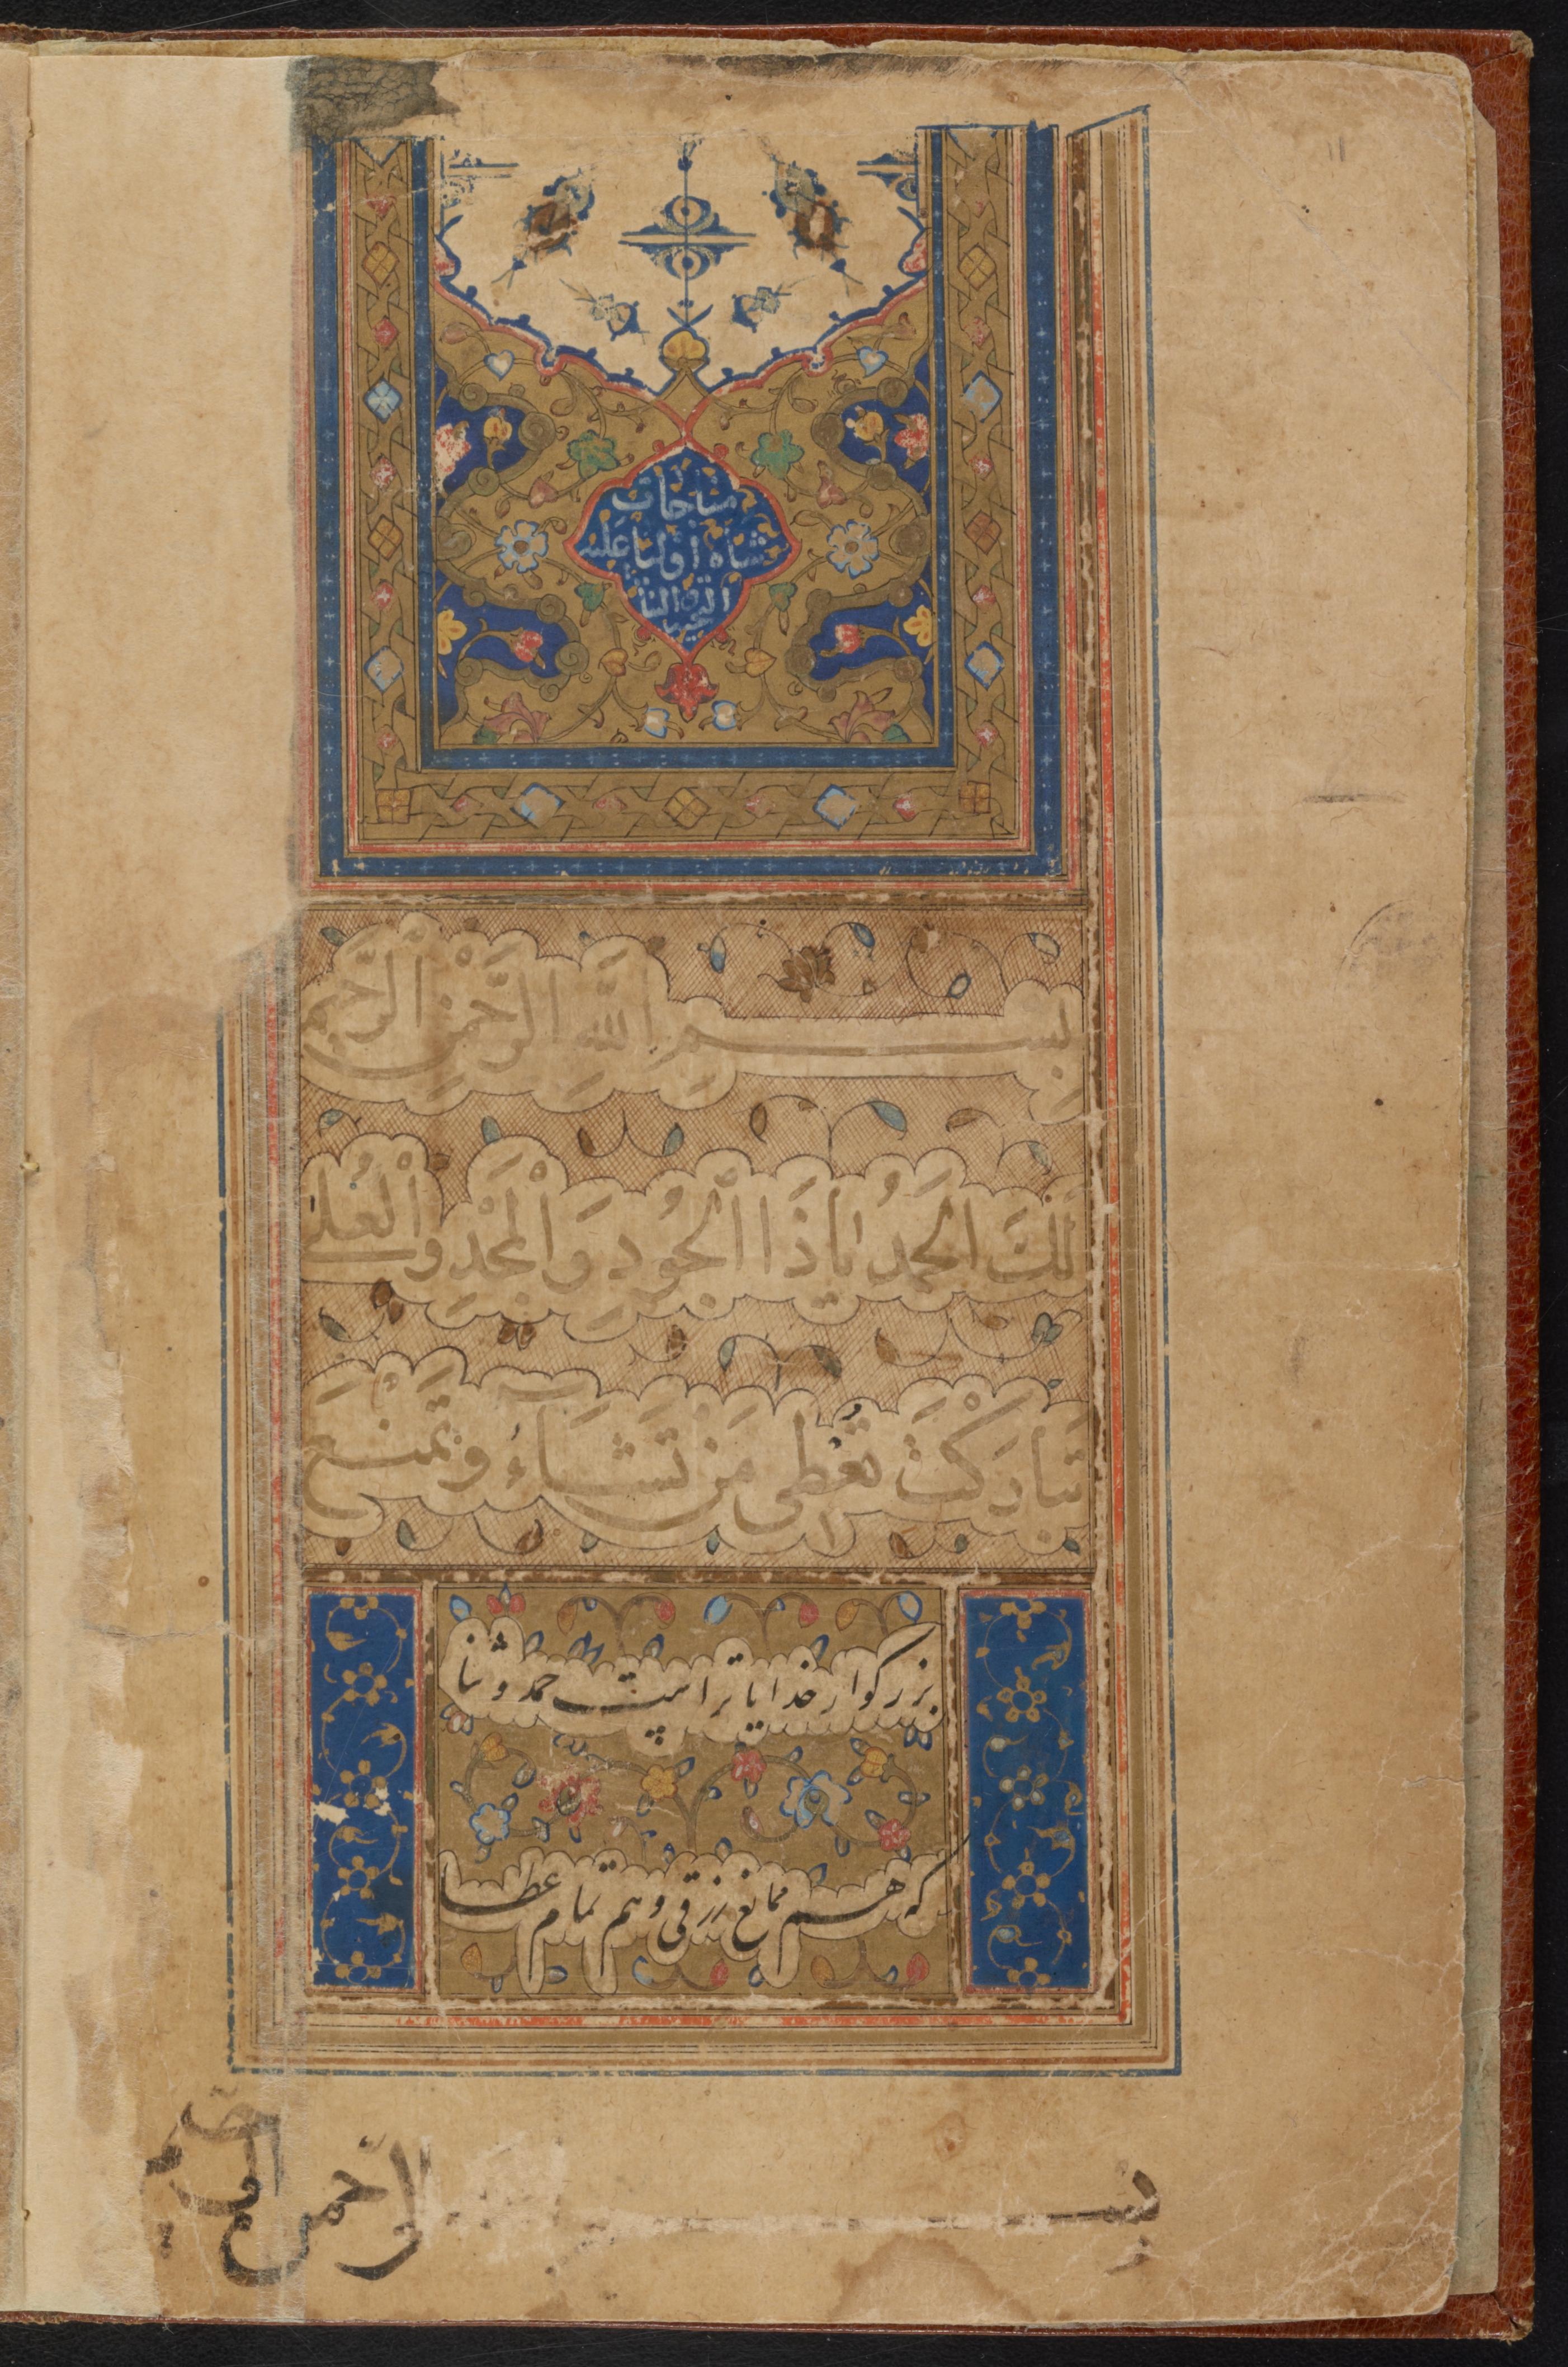 مناجات
شاه اولیا علیه
التحیة و الثنا
بِسْمِ اللَّهِ الرَّحْمٰنِ الرَّحِيم
لَكَ الْحَمْدُ يَا ذَا الْجُودِ وَالْمَجْدِ وَالْعُلٰى
تَبَارَكْتَ تُعْطِي مَنْ تَشَآءُ وَتَمْنَعُ
بزرگوار خدایا تراست حمد و ثنا
که هم ممانع رزقی و هم تمام عطا
بسم
الرّحمن
الرحیم